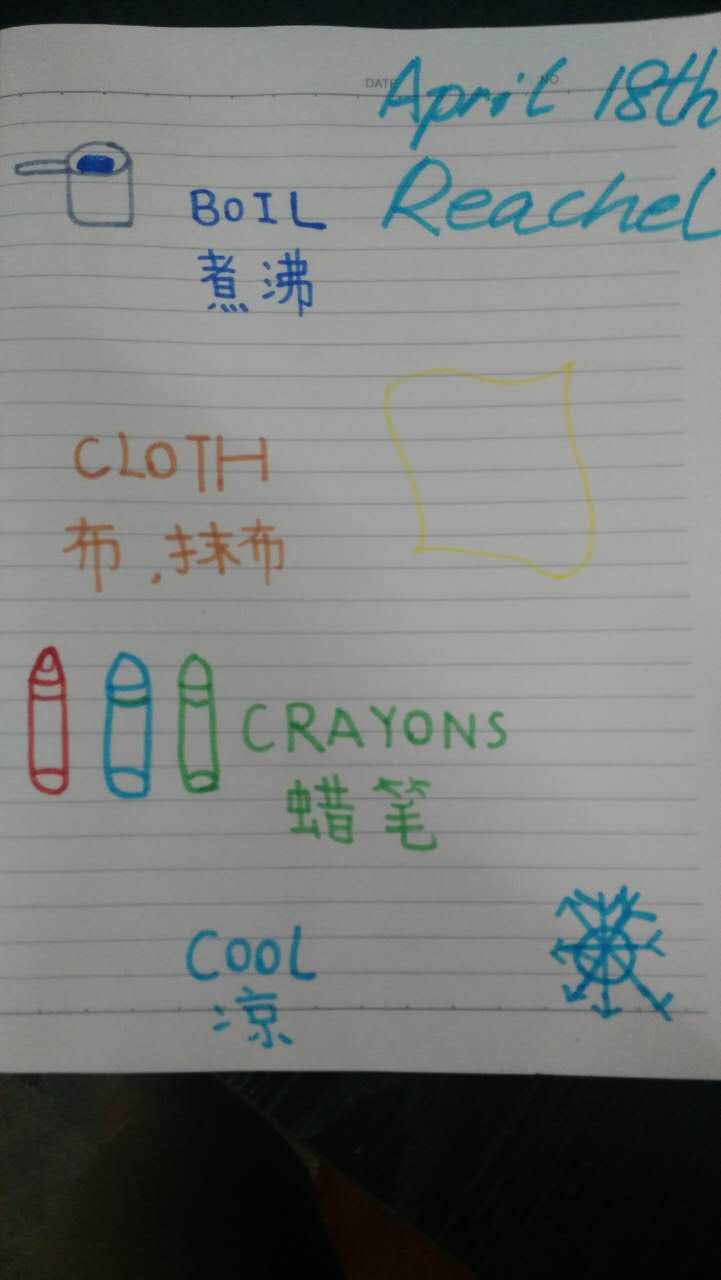 DATE NO
April 18th
Reachel
BOIL
煮沸
CLOTH
布.抹布
CRAYONS
蜡笔
COOL
凉